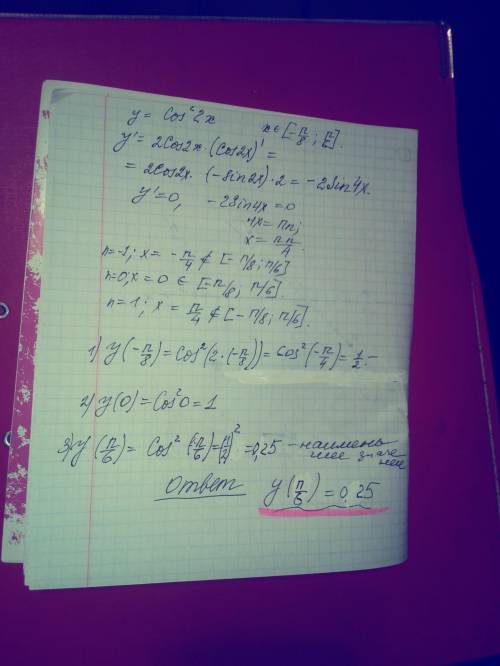 y = Cos²2x   x ∈ [-π/8; π/6].
y' = 2Cos2x · (Cos2x)' =
= 2Cos2x · (-Sin2x) · 2 = -2Sin4x.
y' = 0,   -2Sin4x = 0
4x = πn;
x = πn/4.
n=-1; x = -π/4 ∉ [-π/8; π/6]
n=0, x = 0 ∈ [-π/8; π/6].
n=1; x = π/4 ∉ [-π/8; π/6].
1) y(-π/8) = Cos²(2·(-π/8)) = Cos²(-π/4) = 1/2 -
2) y(0) = Cos²0 = 1
3) y(π/6) = Cos²(π/6) = (1/2)² = 0,25 - наимень
шее значе
ние
Ответ   y(π/6) = 0,25